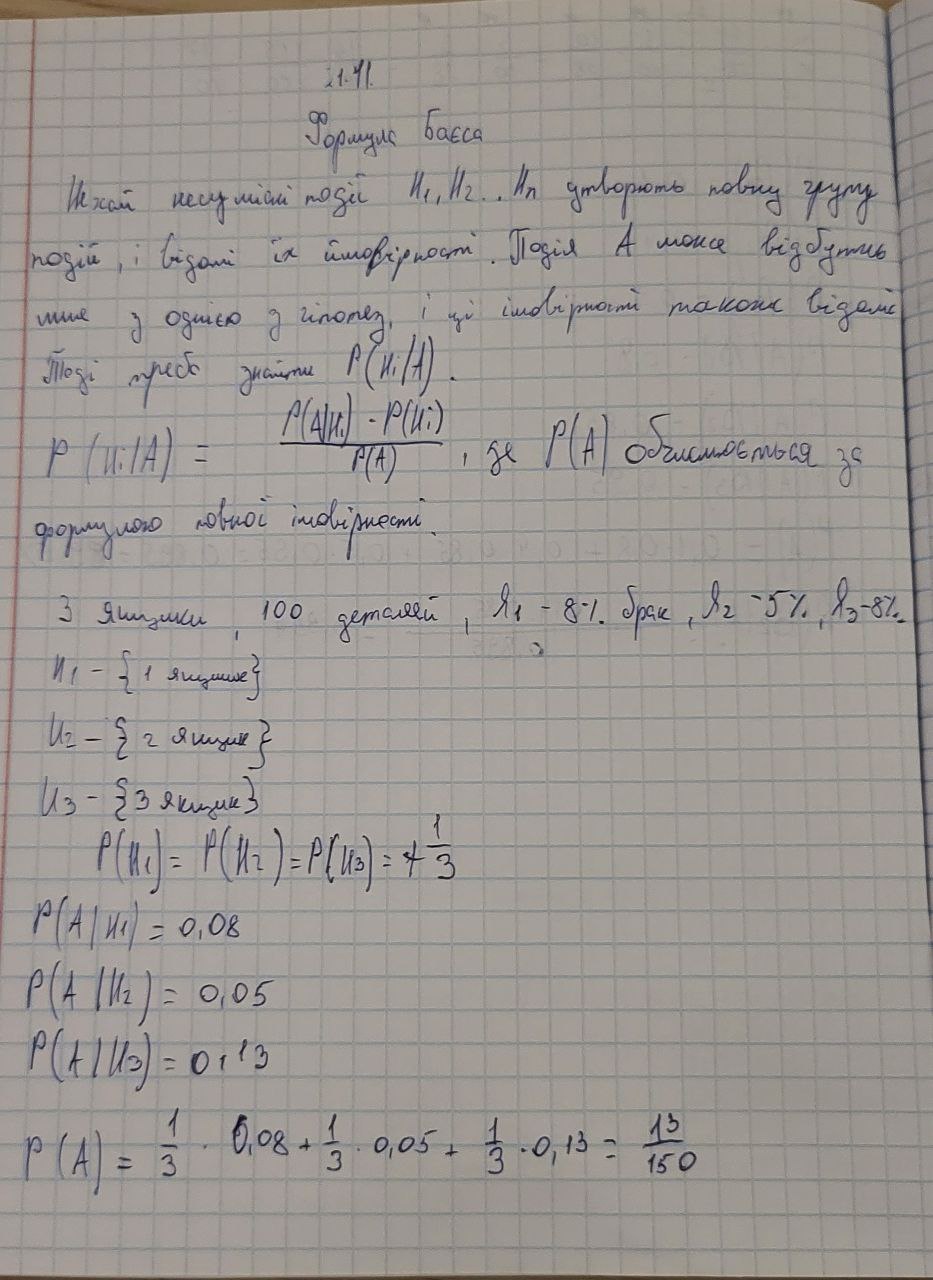 21.11.
Формула Баєса
Нехай несумісні події H₁, H₂ .. Hn утворють повну групу
подій, і відомі їх ймовірності. Подія A може відбутись
лише з однією з гіпотез, і ці імовірності також відомі
Тоді треба знайти P(Hi/A).
P(Hi/A) = P(A/Hi) · P(Hi) / P(A) , де P(A) обчислюється за
формулою повної імовірності.
3 ящики, 100 деталей, Я₁ - 8% брак, Я₂ - 5%, Я₃ - 8%
H₁ - {1 ящик}
H₂ - {2 ящик}
H₃ - {3 ящик}
P(H₁) = P(H₂) = P(H₃) = 1/3
P(A/H₁) = 0,08
P(A/H₂) = 0,05
P(A/H₃) = 0,13
P(A) = 1/3 · 0,08 + 1/3 · 0,05 + 1/3 · 0,13 = 13/150